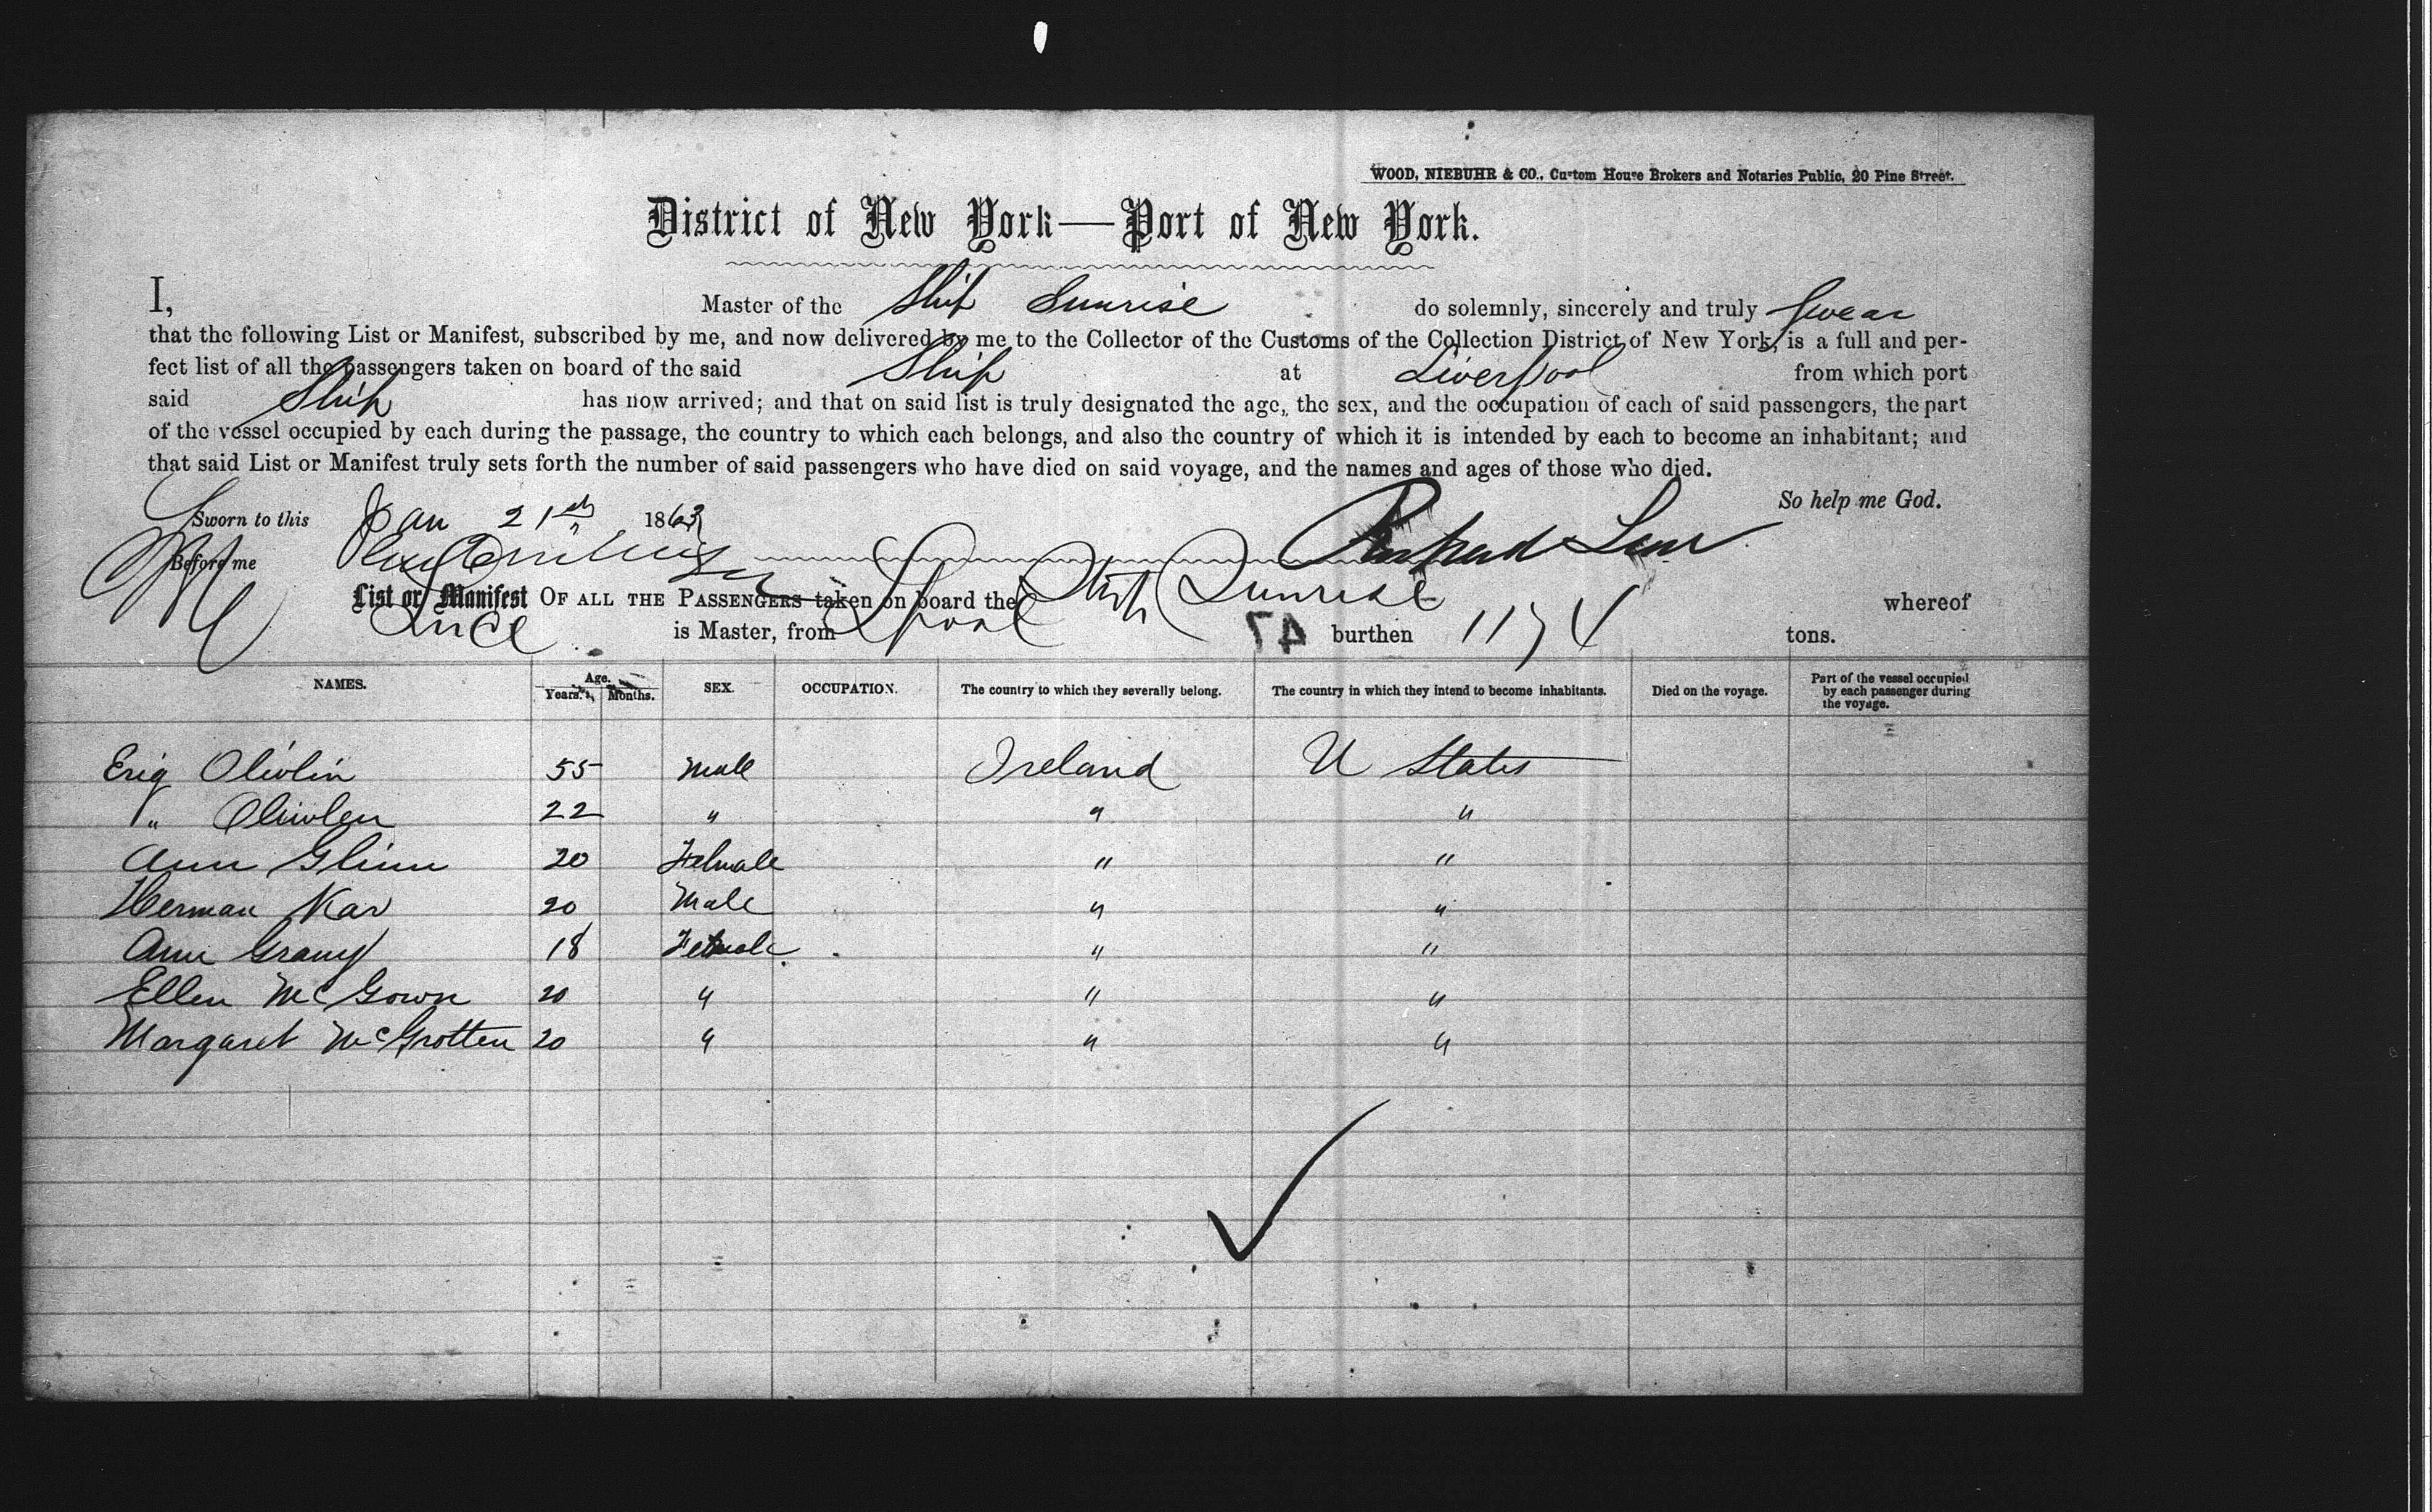 WOOD, NIEBUHR & CO., Custom House Brokers and Notaries Public, 20 Pine Street.
District of New York—Port of New York.
I, Master of the Ship Sunrise do solemnly, sincerely and truly swear
that the following List or Manifest, subscribed by me, and now delivered by me to the Collector of the Customs of the Collection District of New York, is a full and per-
fect list of all the passengers taken on board of the said Ship at Liverpool from which port
said Ship has now arrived; and that on said list is truly designated the age, the sex, and the occupation of each of said passengers, the part
of the vessel occupied by each during the passage, the country to which each belongs, and also the country of which it is intended by each to become an inhabitant; and
that said List or Manifest truly sets forth the number of said passengers who have died on said voyage, and the names and ages of those who died.
So help me God.
Sworn to this Jan 21st 1863
Before me
List or Manifest OF ALL THE PASSENGERS taken on board the Ship Sunrise whereof
Luce is Master, from Lpool burthen 1174 tons.
47
NAMES. Age. Years. Months. SEX. OCCUPATION. The country to which they severally belong. The country in which they intend to become inhabitants. Died on the voyage. Part of the vessel occupied by each passenger during the voyage.
Erig Oliolin 55 Male Ireland U States
" 22 " " "
Ann Glinn 20 Female " "
Herman Kar 20 Male " "
Ann Grany 18 Female " "
Ellen McGown 20 " " "
Margaret McGrotten 20 " " "